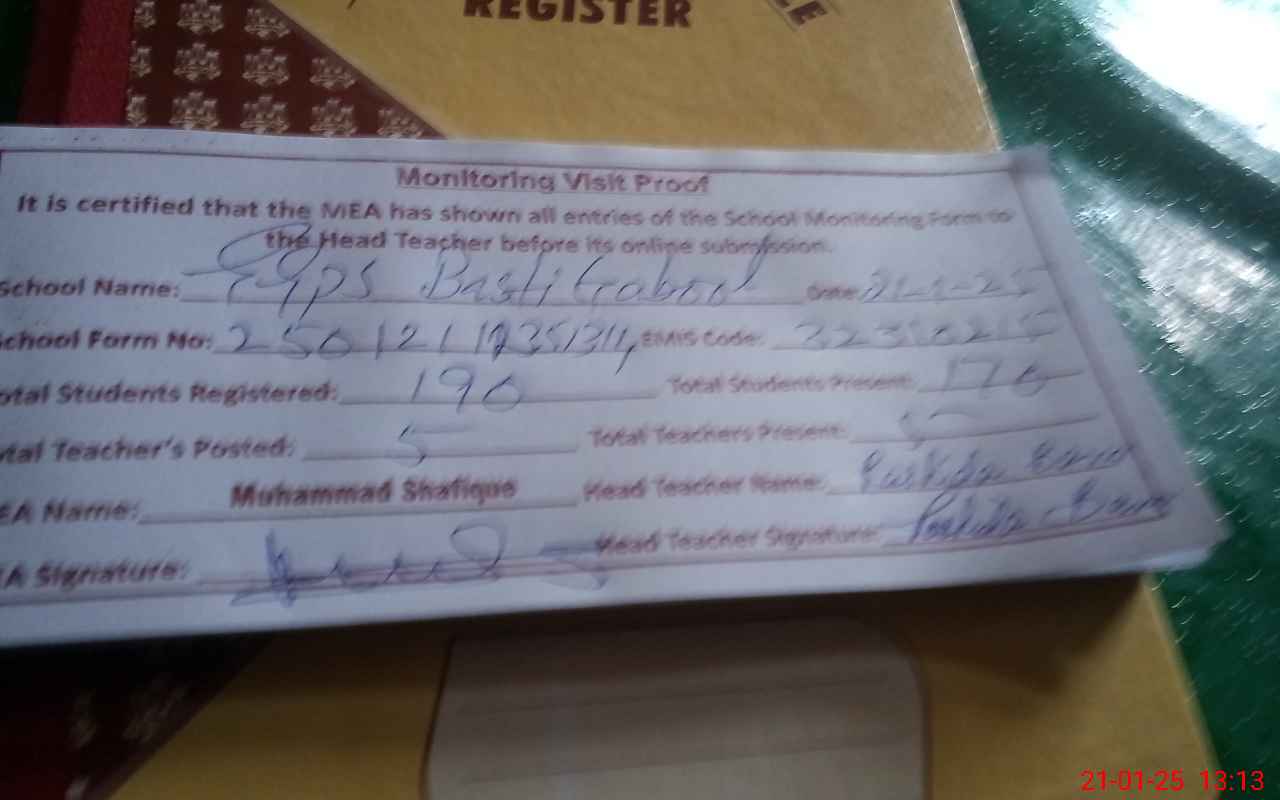 REGISTER
Monitoring Visit Proof
It is certified that the MEA has shown all entries of the School Monitoring Form to
the Head Teacher before its online submission.
School Name: GGPS Basti Gabool Date: 21-1-25
School Form No: EMIS Code:
otal Students Registered: 190 Total Students Present: 170
tal Teacher's Posted: 5 Total Teachers Present: 5
EA Name: Muhammad Shafique Head Teacher Name: Bano
EA Signature: Head Teacher Signature: Bano
21-01-25 13:13